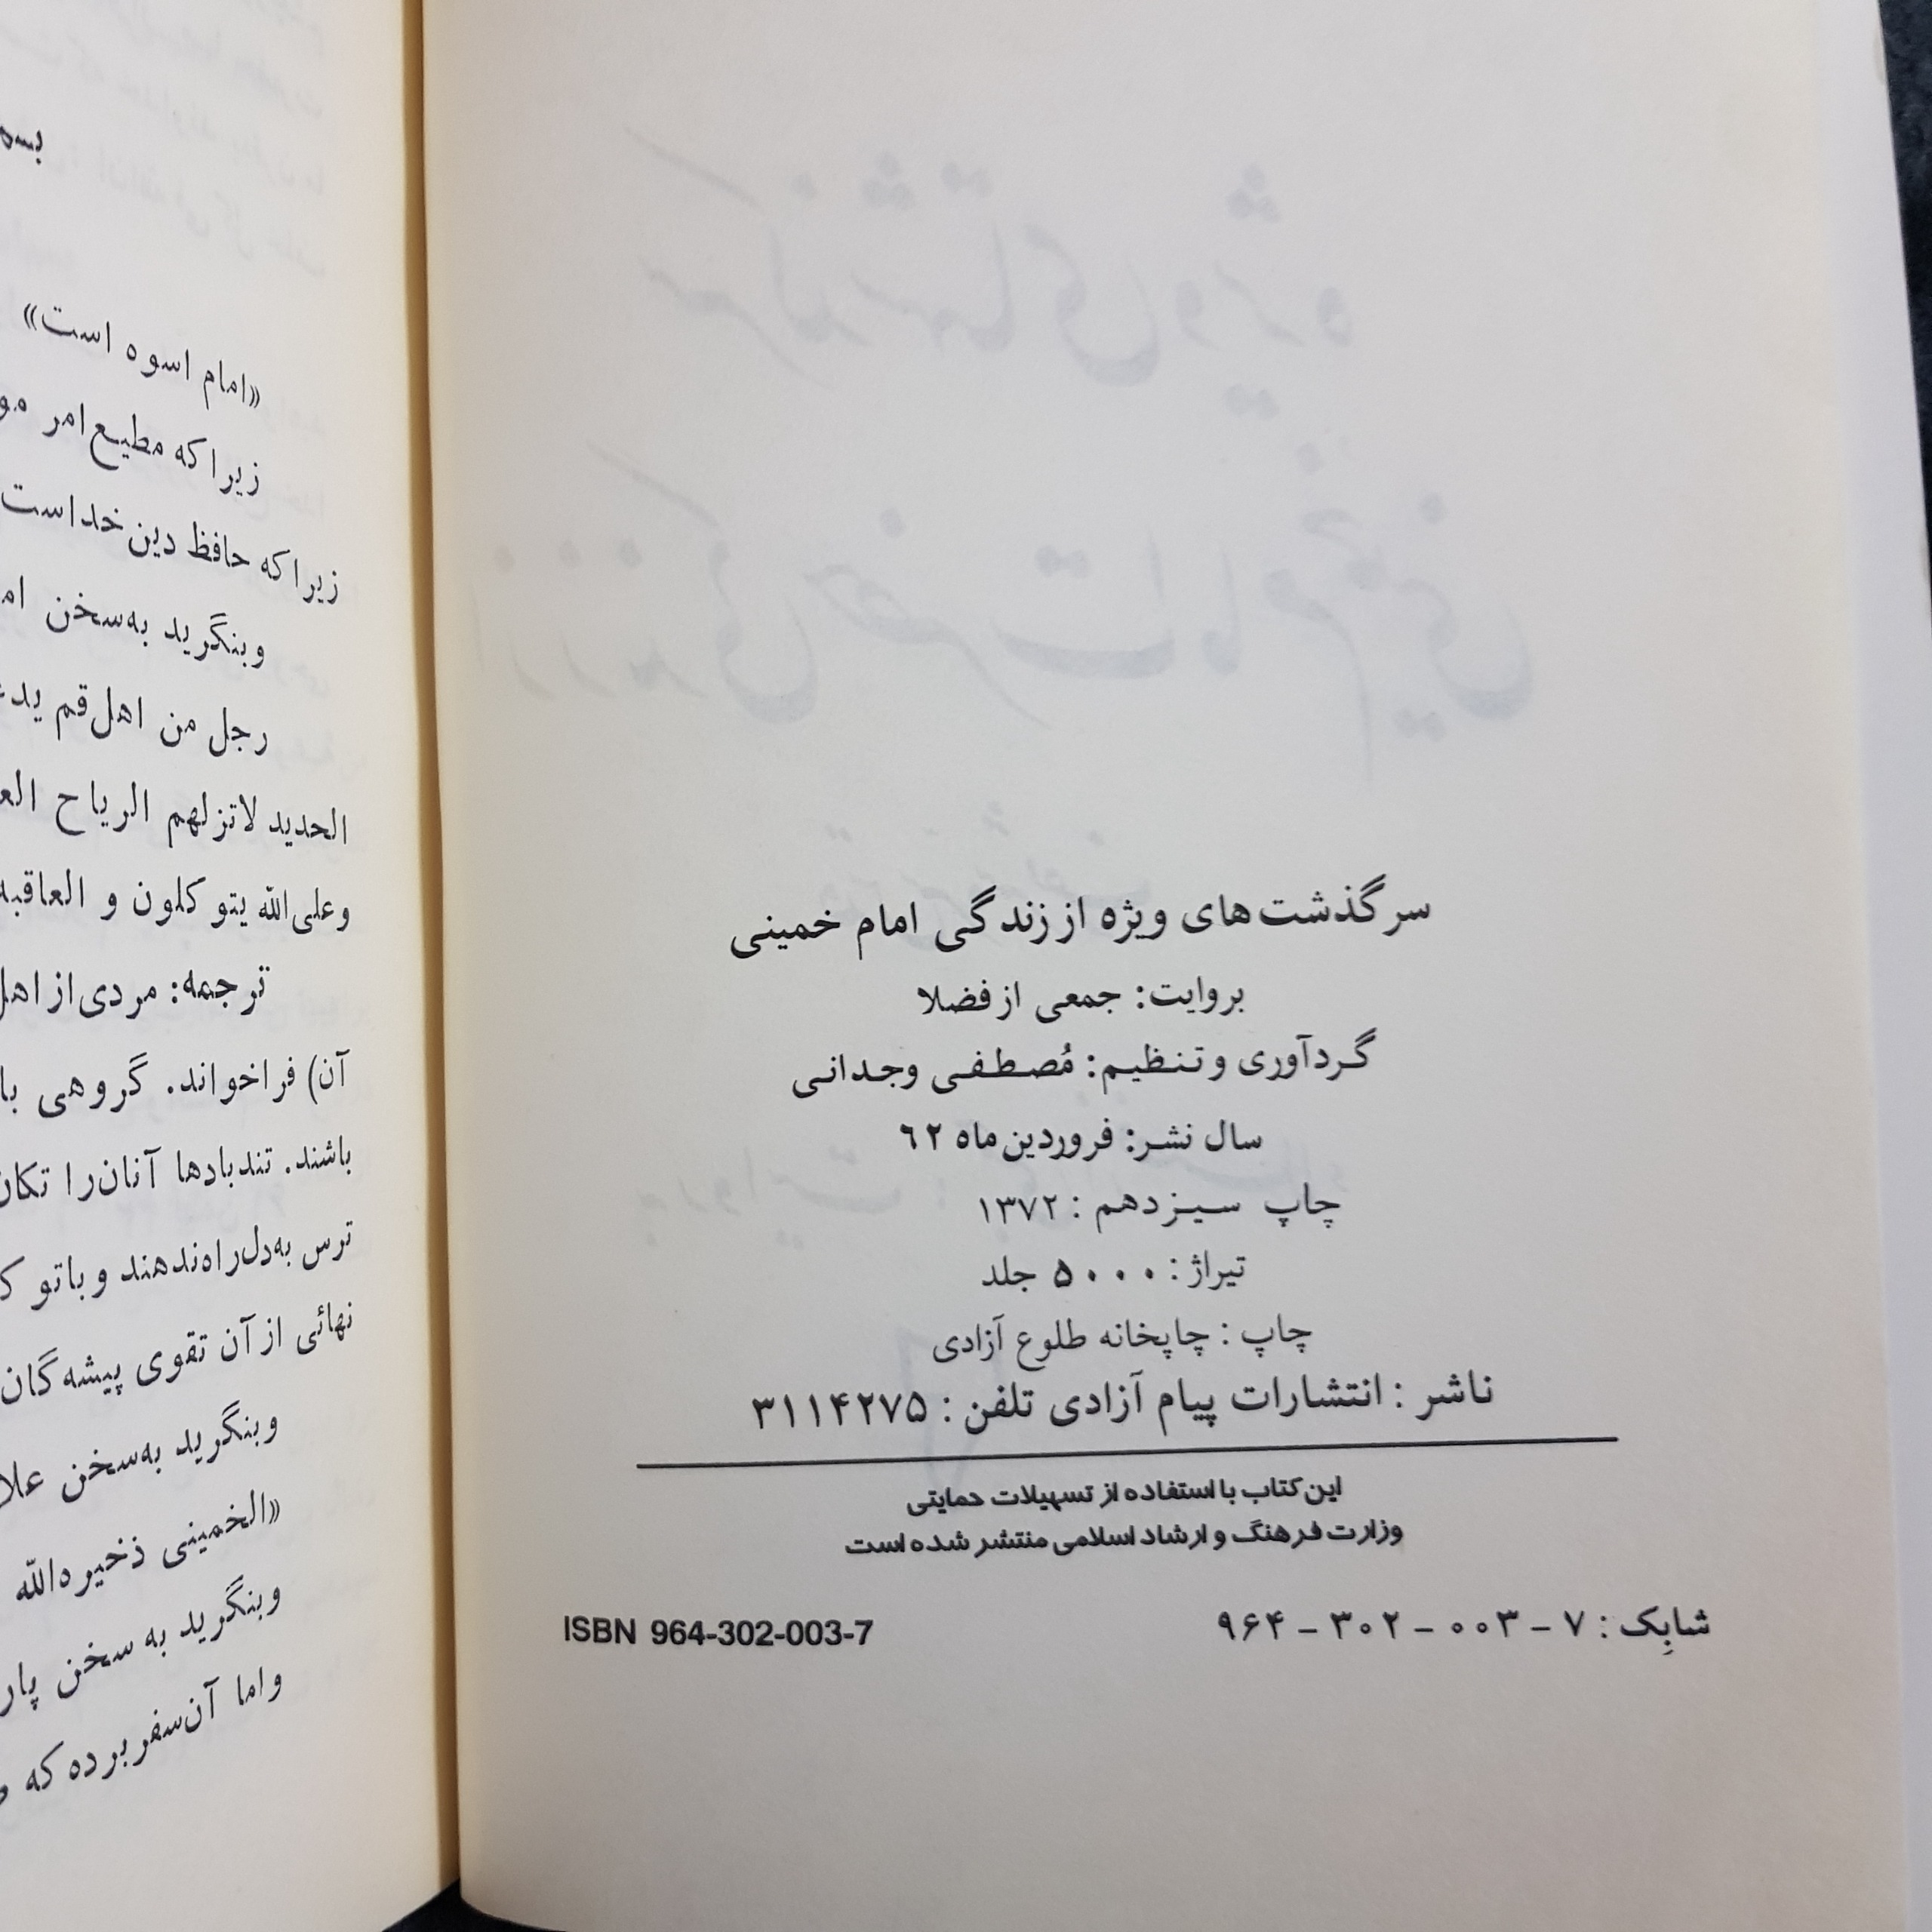 سرگذشت‌های ویژه از زندگی امام خمینی
بروایت: جمعی از فضلا
گردآوری و تنظیم: مُصطفی وجدانی
سال نشر: فروردین ماه ۶۲
چاپ سیزدهم : ۱۳۷۲
تیراژ : ۵۰۰۰ جلد
چاپ : چاپخانه طلوع آزادی
ناشر : انتشارات پیام آزادی تلفن : ۳۱۱۴۲۷۵
این کتاب با استفاده از تسهیلات حمایتی
وزارت فرهنگ و ارشاد اسلامی منتشر شده است
شابِک : ۷ – ۰۰۳ – ۳۰۲ – ۹۶۴
ISBN 964-302-003-7
«امام اسوه است»
زیرا که مطیع امر
زیرا که حافظ دین خداست
وبنگرید به‌سخن
رجل من اهل‌قم
الحدید لاتزلهم الریاح
وعلی‌الله یتوکلون و العاقبه
ترجمه: مردی از
آن) فراخواند. گروهی با
باشند. تندبادها آنان‌را
ترس به‌دل‌راه‌ندهند و باتو
نهائی از آن تقوی پیشه‌گان
وبنگرید به‌سخن
«الخمینی ذخیره‌الله
وبنگرید به سخن
و اما آن‌سفر برده که